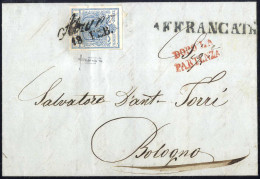 AFFRANCATA
19 FEB.
DOPO LA
PARTENZA
Salvatore D'ant-Torré
Bologna